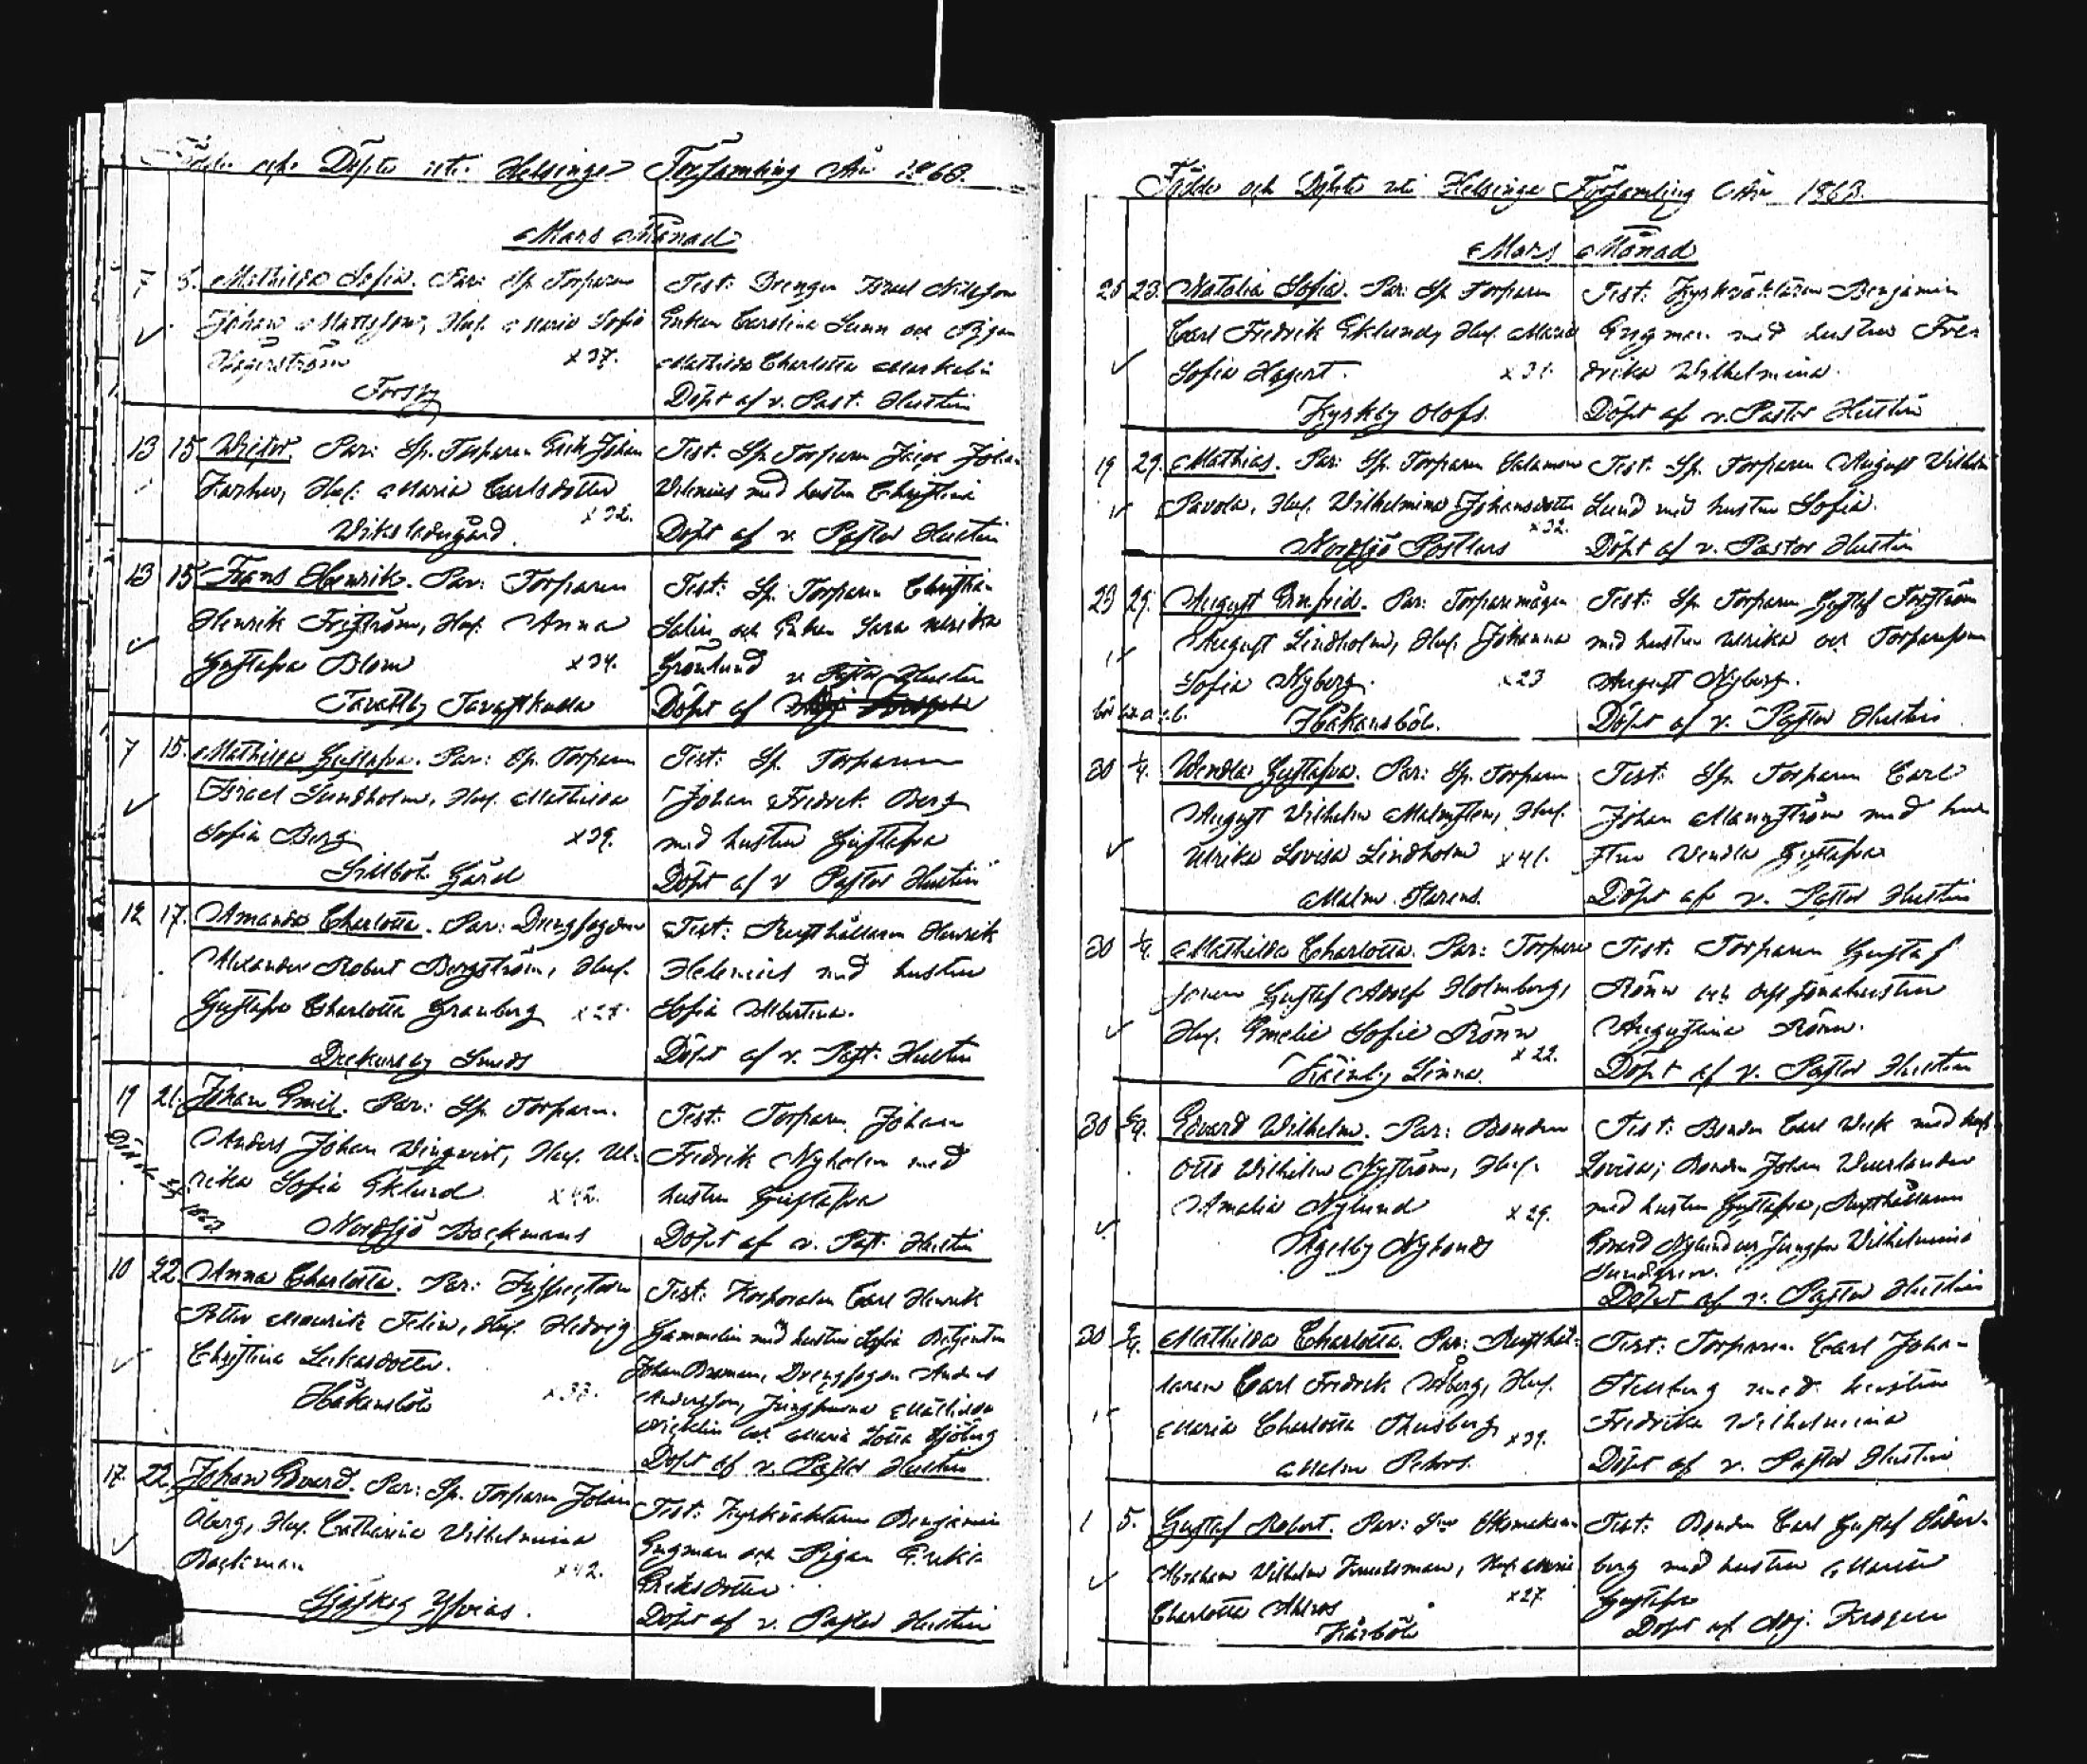 Födde och Döpte uti Helsinge Församling År 1863.
Mars Månad
7 8. Mathilda Sofia. Par: Sp. Torparen
Johan Mattsson, Hus. Maria Sofia
x37.
Forsby
Test: Drengen Israel Nilsson
Enkan Carolina Sunn och Pigan
Mathilda Charlotta
Döpt af v. Past. Hustin
13 15 Victor. Par: Sp. Torparen Erik Johan
Hus: Maria Carlsdotter
x32.
Test: Sp. Torparen Johan
med hustru Christina
Döpt af v. Pastor Hustin
13 15 Frans Henrik. Par: Torparen
Henrik Friström, Hus. Anna
Gustafva Blom x34.
Tavastby Tavastkulla
Test: Sp. Torparen Christian
Salin och Enkan Sara Ulrika
Grönlund v. Pastor Hustin
Döpt af
7 15. Mathilda Gustafva. Par: Sp. Torparen
Israel Sundholm, Hus. Mathilda
Sofia Berg x39.
Sillböle Gård
Test: Sp. Torparen
Johan Fredrik Berg
med hustru Gustafva
Döpt af v Pastor Hustin
12 17. Amanda Charlotta. Par: Drengfogden
Alexander Robert Bergström, Hus.
Gustafva Charlotta Granberg x27.
Dickursby Smeds
Test: Rusthållaren Henrik
Helenius med hustru
Sofia Albertina.
Döpt af v. Past. Hustin
19 21. Johan Emil. Par: Sp. Torparen
Anders Johan Wingvist, Hus. Ul-
rika Sofia Eklund x42.
Nordsjö Backmans
Test: Torparen Johan
Fredrik Nyholm med
hustru Gustafva
Döpt af v. Past. Hustin
10 22. Anna Charlotta. Par: Inspectoren
Petter Mauritz Felin, Hus. Hedvig
Christina
Håkansböle x33.
Test: Korporalen Carl Henrik
Gammelin med hustru Sofia
Johan Drengfogden Anders
Andersson, Jungfruarna Mathilda
och Maria Lotta Sjöberg
Döpt af v. Pastor Hustin
17. 22. Johan Edvard. Par: Sp. Torparen Johan
Åberg, Hus. Catharina Wilhelmina
Backman x42.
Sjöskog
Test: Kyrkväktaren Benjamin
Engman och Pigan Erika
Eriksdotter
Döpt af v. Pastor Hustin
Födde och Döpte uti Helsinge Församling År 1863.
Mars Månad
25 23. Natalia Sofia. Par: Sp Torparen
Carl Fredrik Eklund, Hus. Maria
Sofia Hagert. x31.
Kyrkby Olofs.
Test: Kyrkväktaren Benjamin
Engman med hustru Fre-
drika Wilhelmina.
Döpt af v. Pastor Hustin
19 29. Mathias. Par: Sp. Torparen Salamon
Pavola, Hus. Wilhelmina Johansdotter
x32.
Nordsjö Postlars
Test: Sp. Torparen August Wilhelm
Lund med hustru Sofia.
Döpt af v. Pastor Hustin
23 29. August Anfrid. Par: Torparemågen
August Lindholm, Hus. Johanna
Sofia Nyberg. x23
Håkansböle.
Test: Sp Torparen Gustaf Forsström
med hustru Ulrika och Torpareson
August Nyberg.
Döpt af v. Pastor Hustin
30 1/4. Wendla Gustafva. Par: Sp. Torparen
August Wilhelm Malmsten, Hus.
Ulrika Lovisa Lindholm x41.
Malm Starens.
Test: Sp. Torparen Carl
Johan Mannström med hu-
stru Wendla Gustafva
Döpt af v. Pastor Hustin
30 1/4. Mathilda Charlotta. Par: Torpare
sonen Gustaf Adolf Holmberg,
Hus. Emelie Sofie Rönn
x22.
Test: Torparen Gustaf
Rönn och dess sonahustru
Augustina Rönn.
Döpt af v. Pastor Hustin
30 Edvard Wilhelm. Par: Bonden
Otto Wilhelm Nyström, Hus.
Amalia Nylund x29.
Test: Bonden Carl Wiik med hust.
Lovisa; Bonden Johan
med hustru Gustafva, Rusthållaren
Edvard Nylund och Jungfru Wilhelmina
Döpt af v. Pastor Hustin
30 Mathilda Charlotta. Par: Rusthål-
laren Carl Fredrik Åberg, Hus.
Maria Charlotta x39.
Malm Pehrs.
Test: Torparen Carl Johan
Stenberg med hustru
Fredrika Wilhelmina
Döpt af v. Pastor Hustin
1 5. Gustaf Robert. Par: Skomakaren
Abraham Wilhelm Hus. Maria
Charlotta Ahlros x27.
Kårböle
Test: Bonden Carl Gustaf Söder-
berg med hustru Maria
Gustafva
Döpt af Adj. Krogen